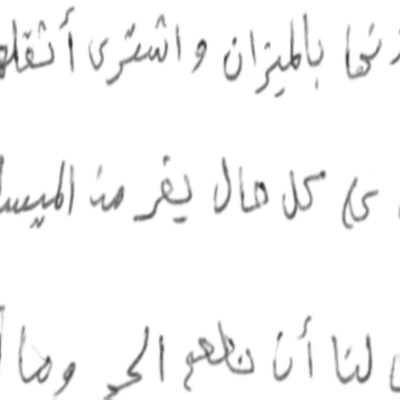 بالميزان واشترى أثقلها
كل حال يفر من
لنا أن نطعم الحي وما